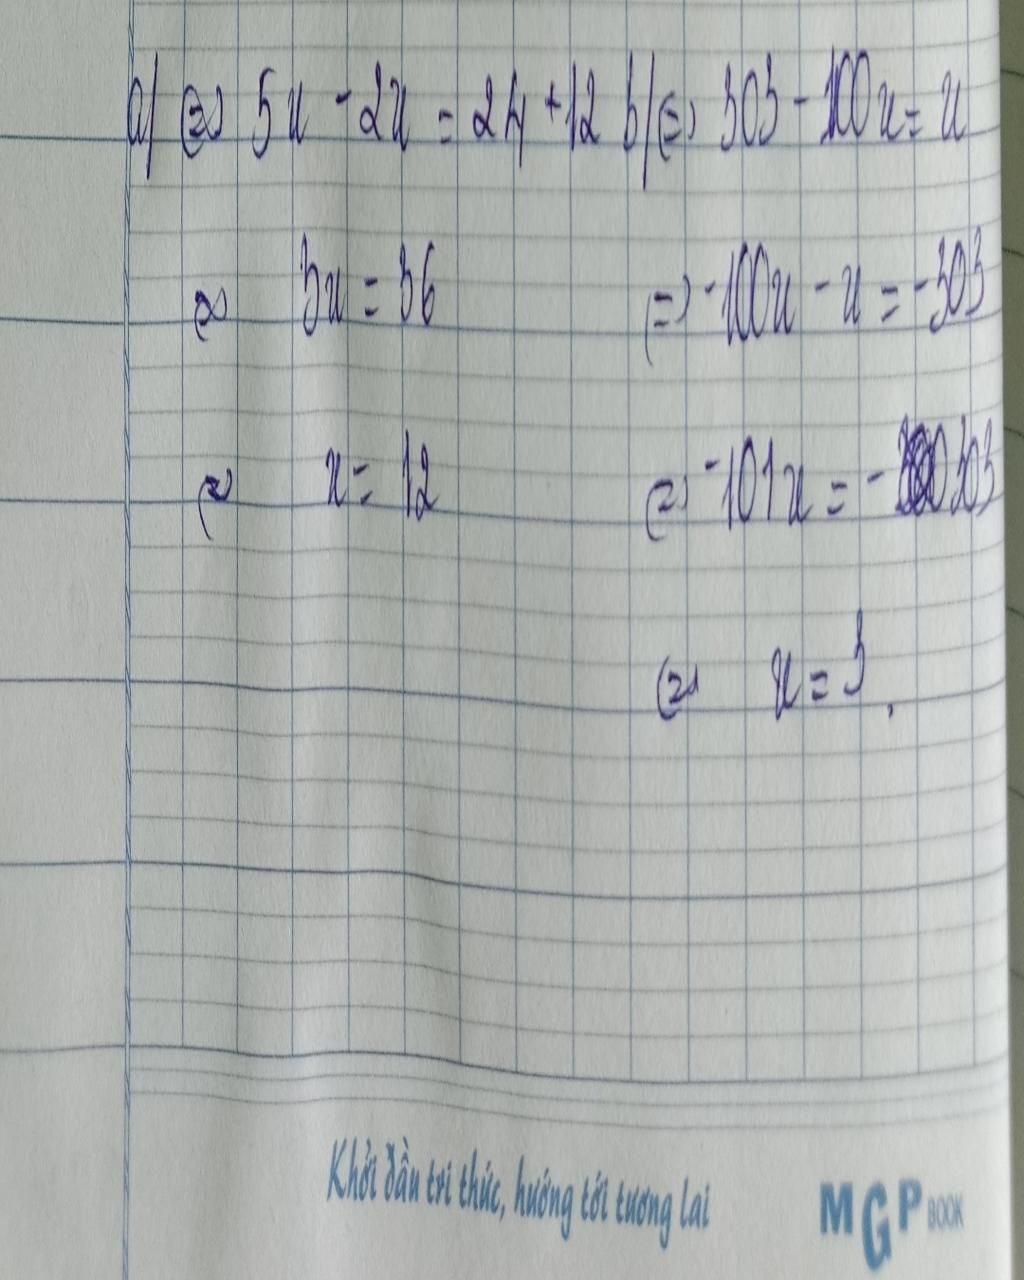 a) ⇔ 5x - 2x = 24 + 12
⇔ 3x = 36
⇔ x = 12
b) ⇔ 303 - 100x = x
⇔ -100x - x = -303
⇔ -101x = -303
⇔ x = 3.
Khởi đầu tri thức, hướng tới tương lai
MGP BOOK